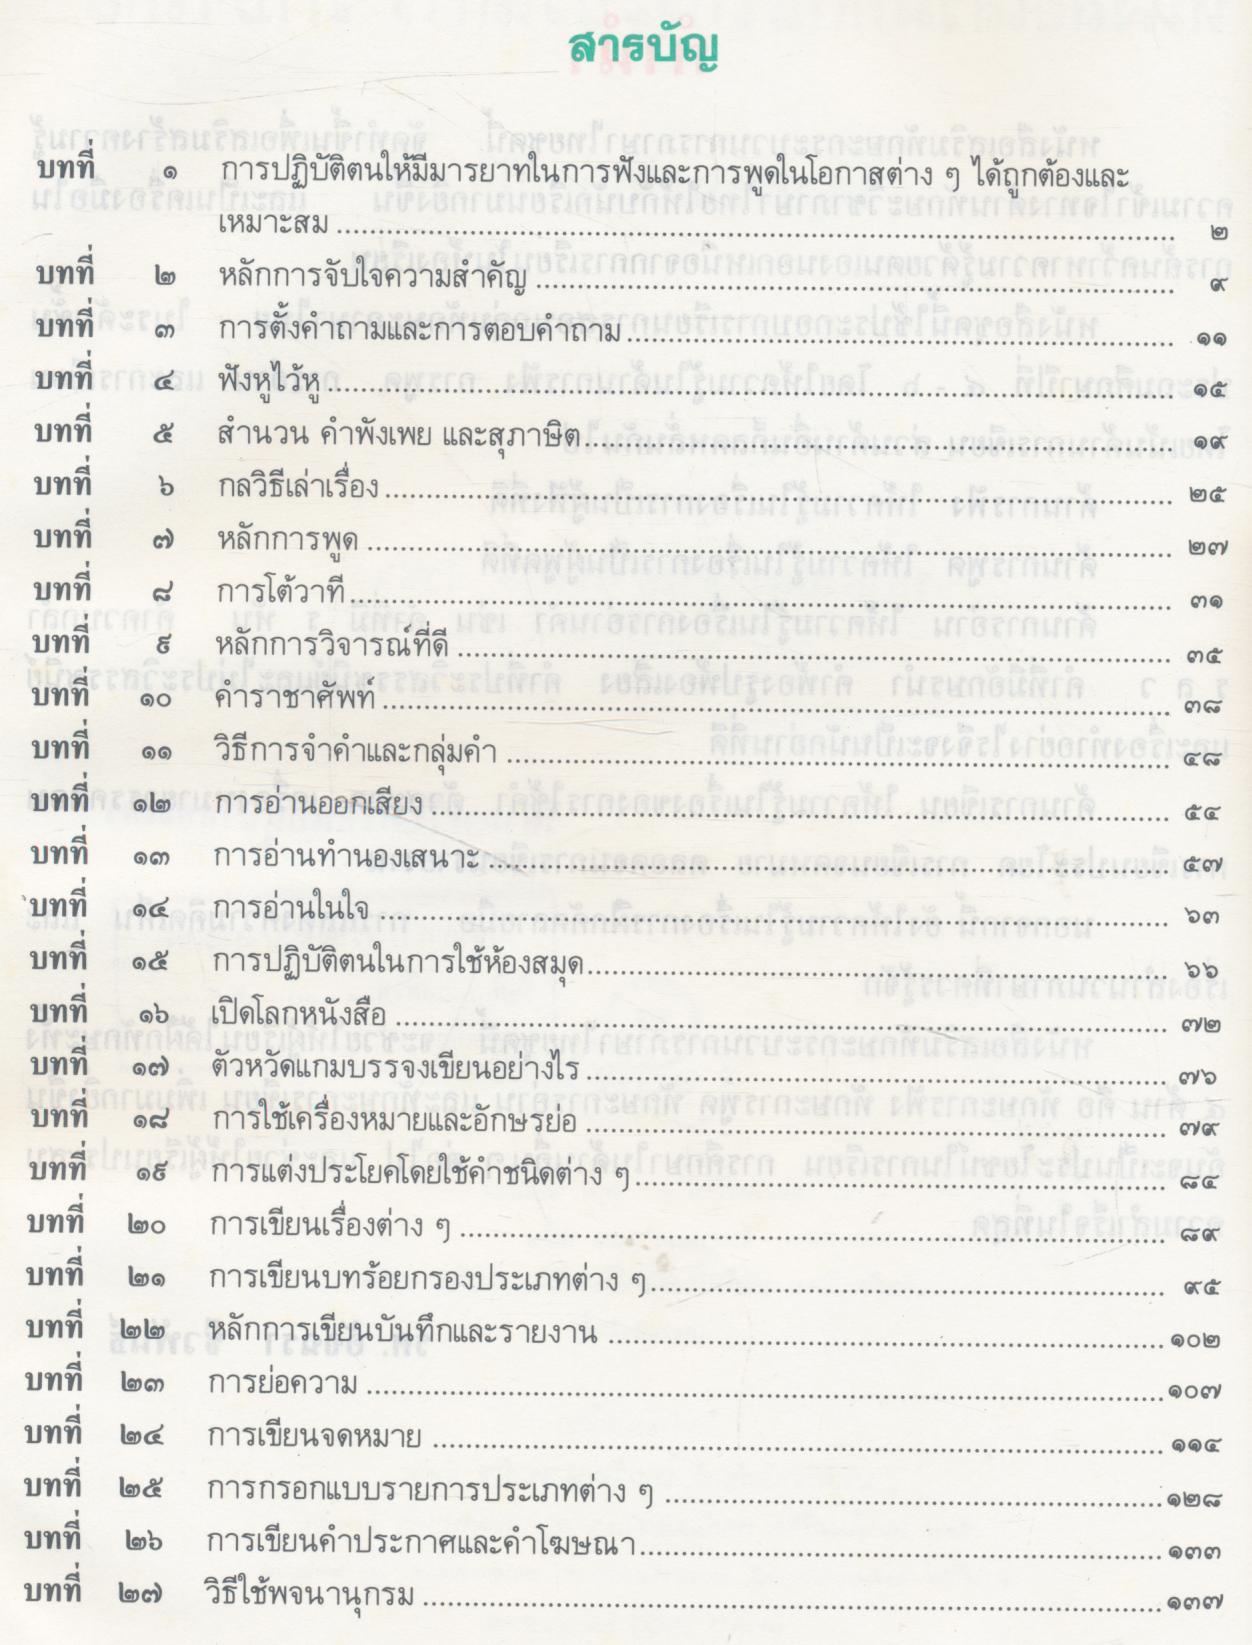 สารบัญ
บทที่ ๑ การปฏิบัติตนให้มีมารยาทในการฟังและการพูดในโอกาสต่าง ๆ ได้ถูกต้องและ
เหมาะสม ๒
บทที่ ๒ หลักการจับใจความสำคัญ ๙
บทที่ ๓ การตั้งคำถามและการตอบคำถาม ๑๑
บทที่ ๔ ฟังหูไว้หู ๑๕
บทที่ ๕ สำนวน คำพังเพย และสุภาษิต ๑๙
บทที่ ๖ กลวิธีเล่าเรื่อง ๒๕
บทที่ ๗ หลักการพูด ๒๗
บทที่ ๘ การโต้วาที ๓๑
บทที่ ๙ หลักการวิจารณ์ที่ดี ๓๕
บทที่ ๑๐ คำราชาศัพท์ ๓๘
บทที่ ๑๑ วิธีการจำคำและกลุ่มคำ ๔๘
บทที่ ๑๒ การอ่านออกเสียง ๕๔
บทที่ ๑๓ การอ่านทำนองเสนาะ ๕๗
บทที่ ๑๔ การอ่านในใจ ๖๓
บทที่ ๑๕ การปฏิบัติตนในการใช้ห้องสมุด ๖๖
บทที่ ๑๖ เปิดโลกหนังสือ ๗๒
บทที่ ๑๗ ตัวหวัดแกมบรรจงเขียนอย่างไร ๗๖
บทที่ ๑๘ การใช้เครื่องหมายและอักษรย่อ ๗๙
บทที่ ๑๙ การแต่งประโยคโดยใช้คำชนิดต่าง ๆ ๘๔
บทที่ ๒๐ การเขียนเรื่องต่าง ๆ ๘๙
บทที่ ๒๑ การเขียนบทร้อยกรองประเภทต่าง ๆ ๙๕
บทที่ ๒๒ หลักการเขียนบันทึกและรายงาน ๑๐๒
บทที่ ๒๓ การย่อความ ๑๐๗
บทที่ ๒๔ การเขียนจดหมาย ๑๑๔
บทที่ ๒๕ การกรอกแบบรายการประเภทต่าง ๆ ๑๒๘
บทที่ ๒๖ การเขียนคำประกาศและคำโฆษณา ๑๓๓
บทที่ ๒๗ วิธีใช้พจนานุกรม ๑๓๗